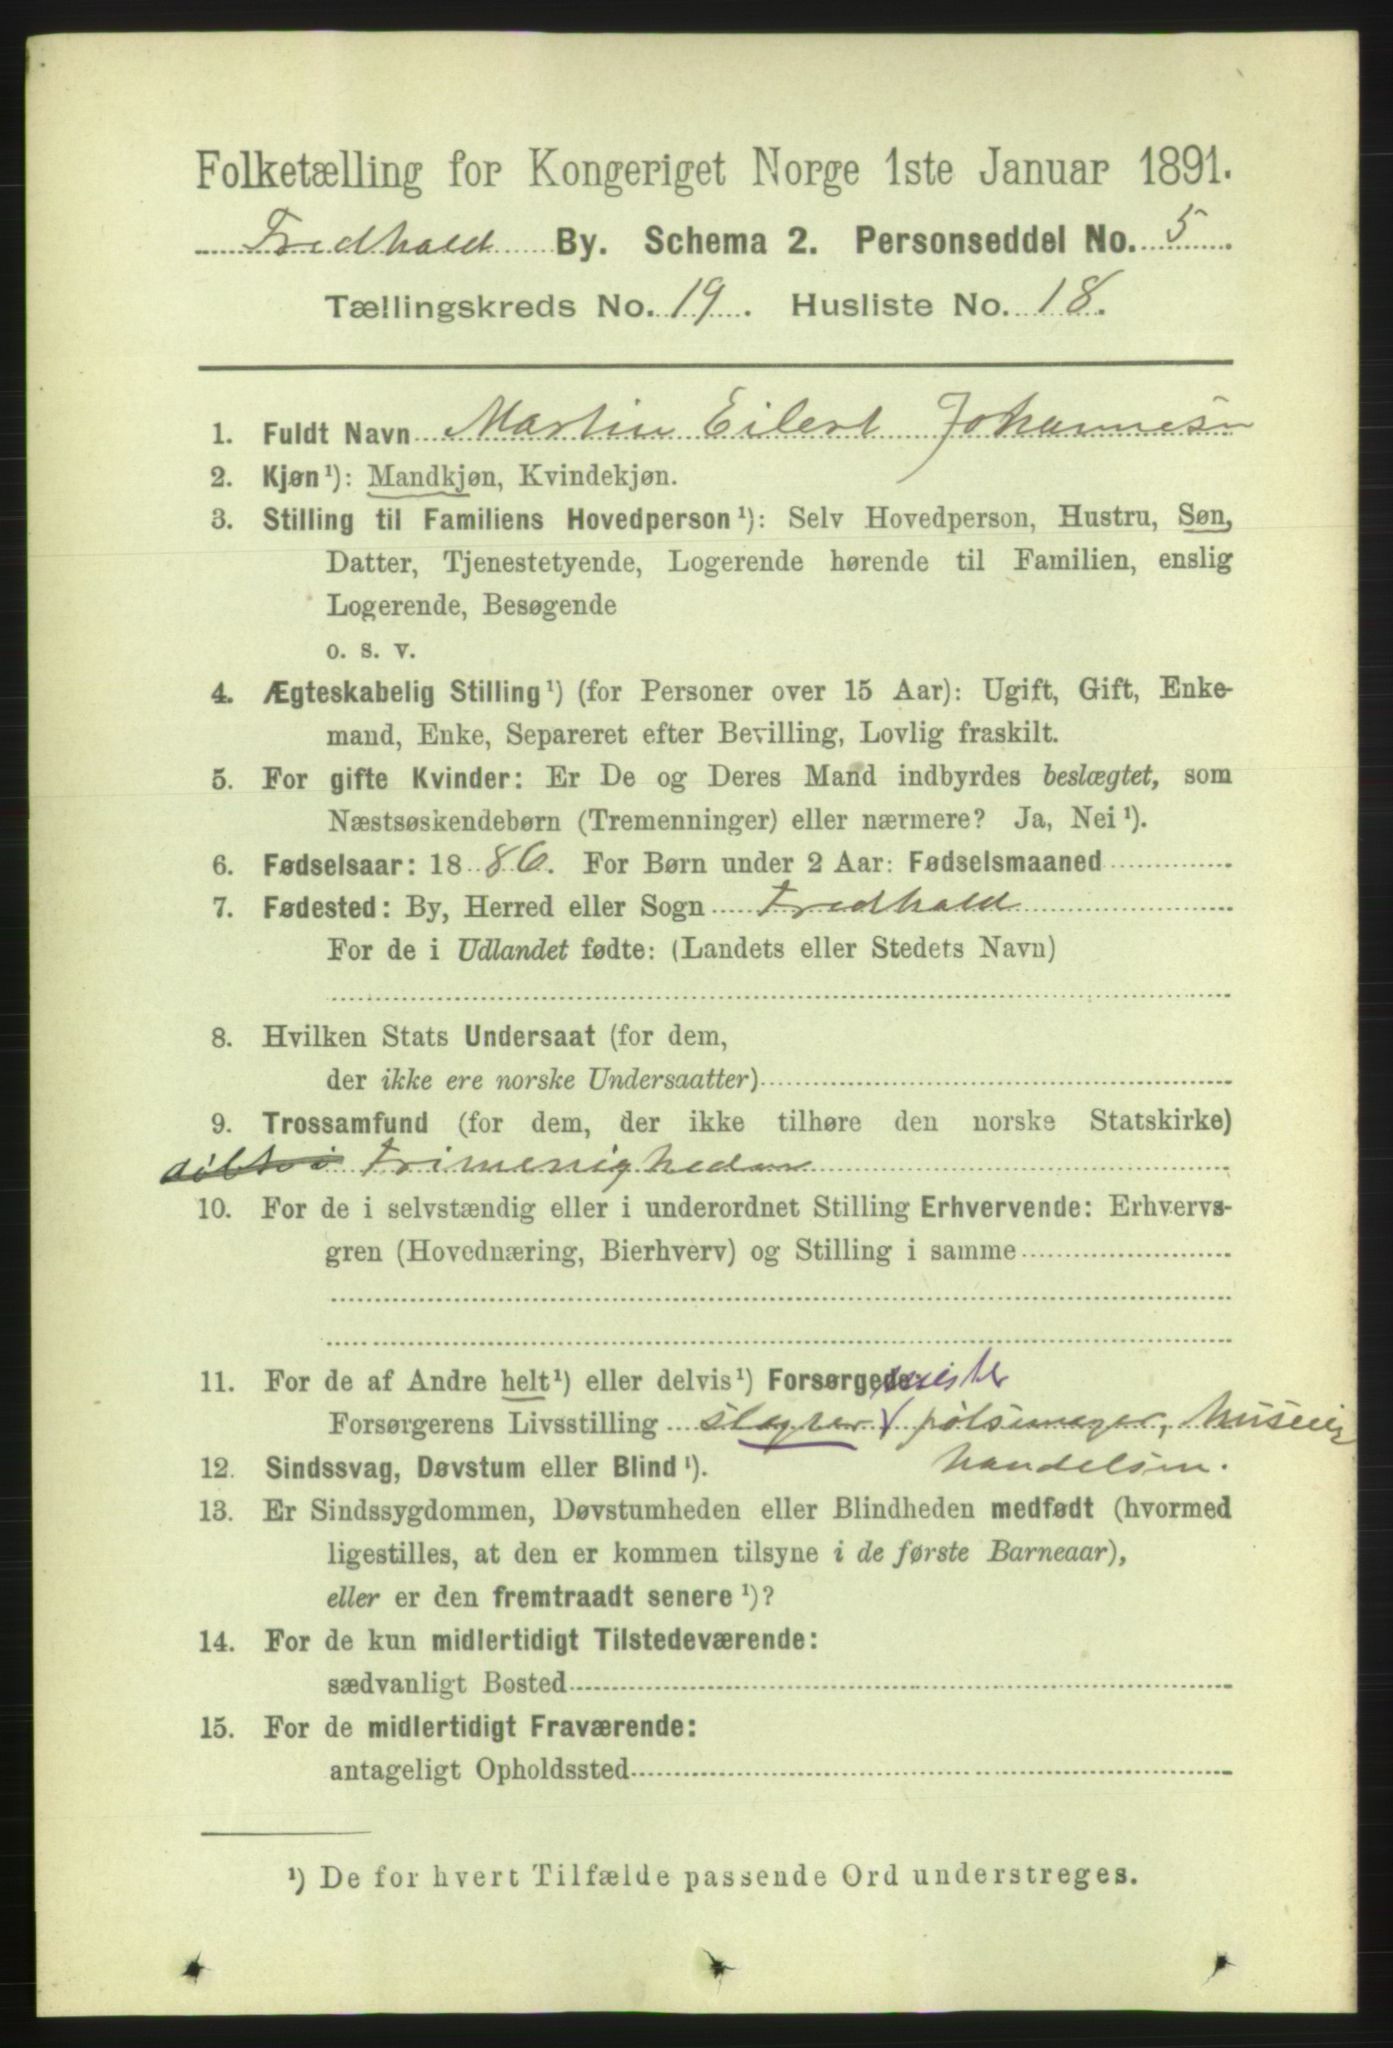 Folketælling for Kongeriget Norge 1ste Januar 1891.
Fredhald By. Schema 2. Personseddel No. 5
Tællingskreds No. 19. Husliste No. 18.
1. Fuldt Navn Martin Eilert Johannesn
2. Kjøn¹): Mandkjøn, Kvindekjøn.
3. Stilling til Familiens Hovedperson¹): Selv Hovedperson, Hustru, Søn,
Datter, Tjenestetyende, Logerende hørende til Familien, enslig
Logerende, Besøgende
o. s. v.
4. Ægteskabelig Stilling¹) (for Personer over 15 Aar): Ugift, Gift, Enke-
mand, Enke, Separeret efter Bevilling, Lovlig fraskilt.
5. For gifte Kvinder: Er De og Deres Mand indbyrdes beslægtet, som
Næstsøskendebørn (Tremenninger) eller nærmere? Ja, Nei¹).
6. Fødselsaar: 1886. For Børn under 2 Aar: Fødselsmaaned
7. Fødested: By, Herred eller Sogn Fredhald
For de i Udlandet fødte: (Landets eller Stedets Navn)
8. Hvilken Stats Undersaat (for dem,
der ikke ere norske Undersaatter)
9. Trossamfund (for dem, der ikke tilhøre den norske Statskirke)
Frimenigheden
10. For de i selvstændig eller i underordnet Stilling Erhvervende: Erhvervs-
gren (Hovednæring, Bierhverv) og Stilling i samme
11. For de af Andre helt¹) eller delvis¹) Forsørgede:
Forsørgerens Livsstilling slagter pølsemager,
handelsm.
12. Sindssvag, Døvstum eller Blind¹).
13. Er Sindssygdommen, Døvstumheden eller Blindheden medfødt (hvormed
ligestilles, at den er kommen tilsyne i de første Barneaar),
eller er den fremtraadt senere¹)?
14. For de kun midlertidigt Tilstedeværende:
sædvanligt Bosted
15. For de midlertidigt Fraværende:
antageligt Opholdssted
¹) De for hvert Tilfælde passende Ord understreges.